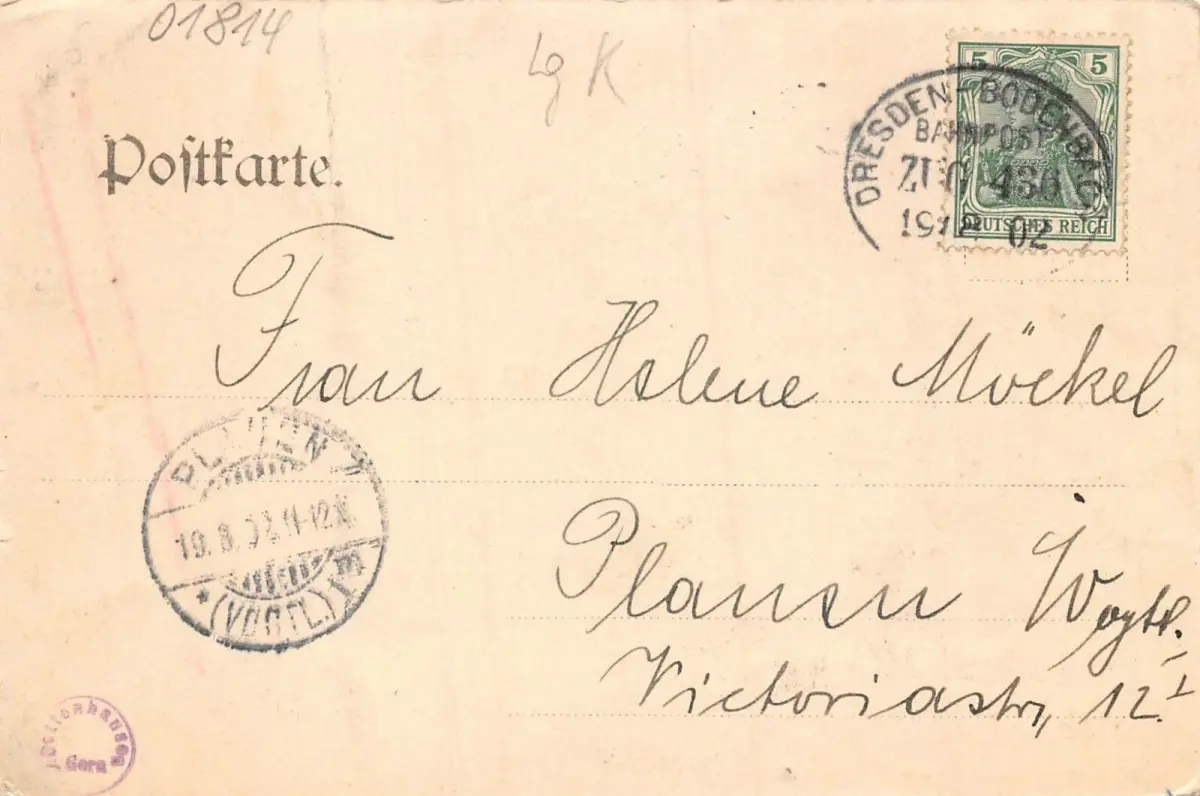 01814
Lg K
5 5
DEUTSCHES REICH
DRESDEN-BODENBAC
BAHNPOST
ZUG 486
02
Poſtkarte.
Frau Helene Möckel
PLAUEN
19.8.02.11-12V.
*(VOGTL.)
Plauen Vogtl.
Victoriastr, 12 I.
Gera